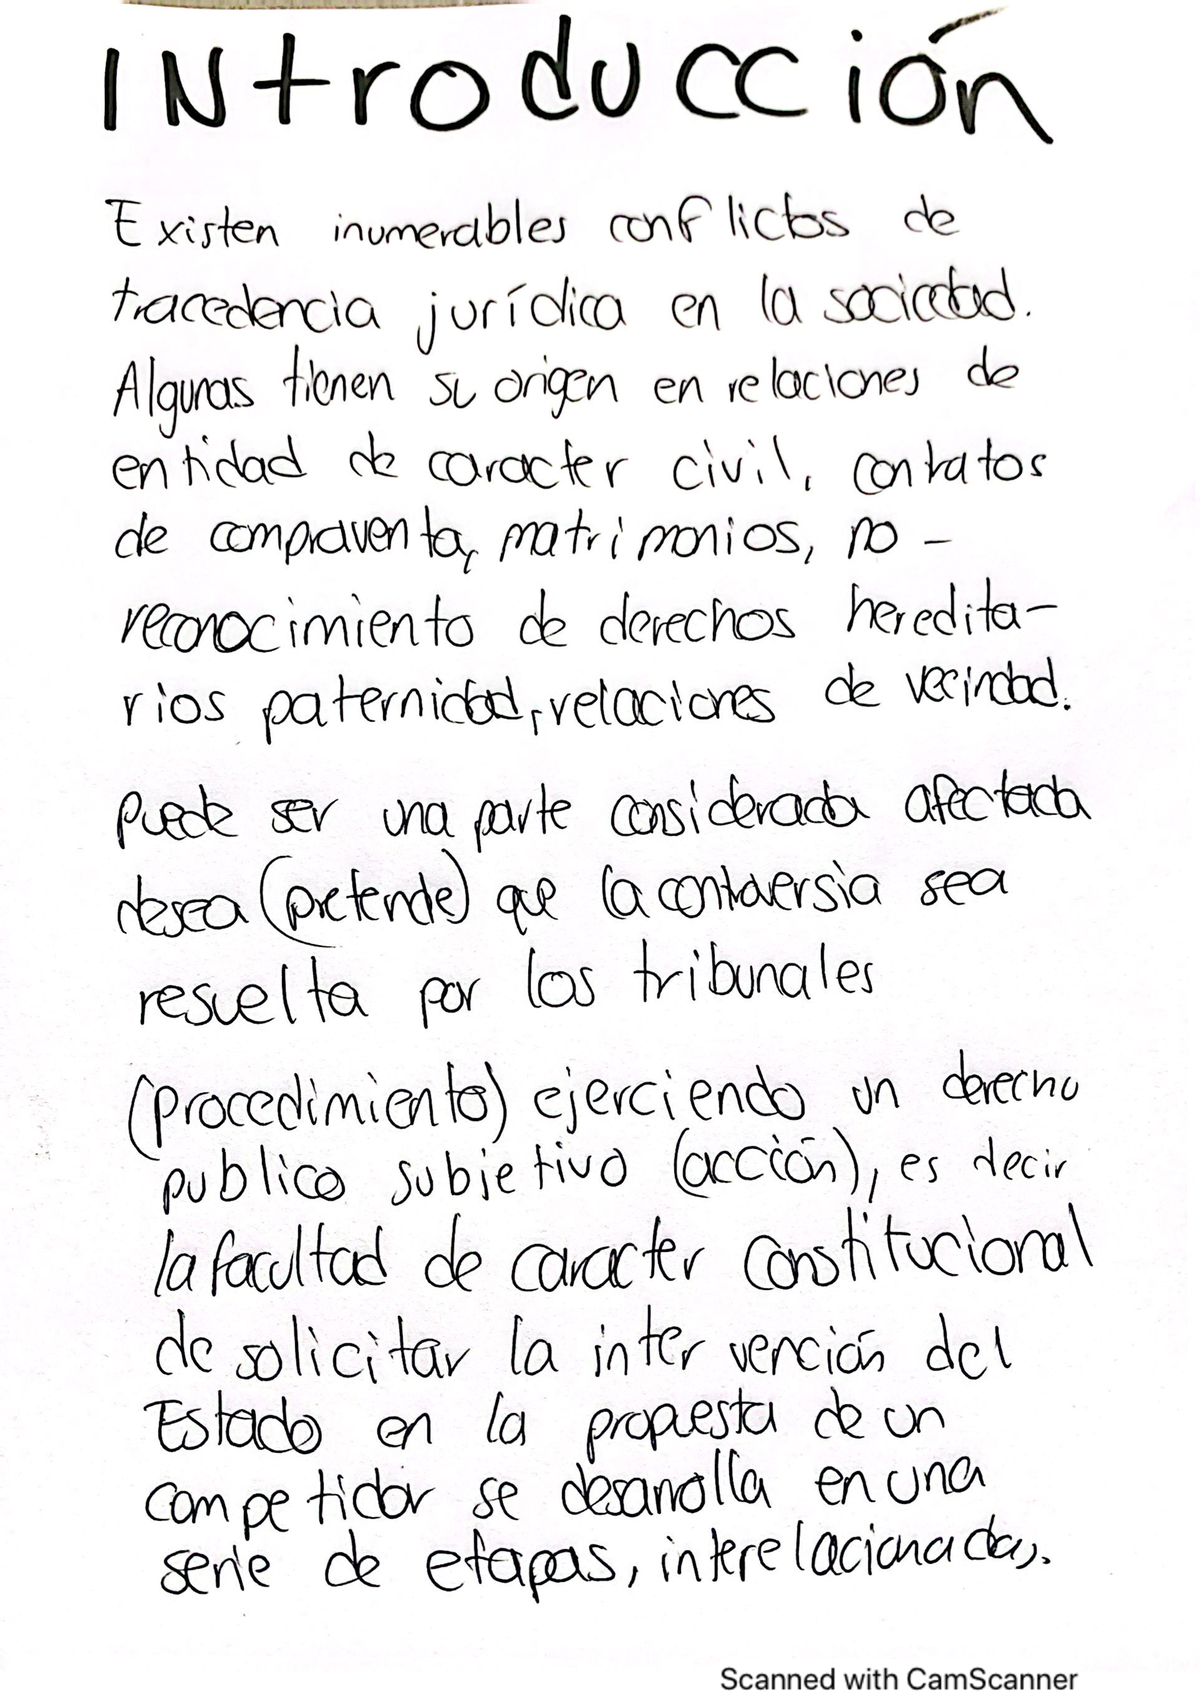 INtroducción
Existen inumerables conflictos de
tracedencia jurídica en la sociedad.
Algunas tienen su origen en relaciones de
entidad de caracter civil, contratos
de compraventa, matrimonios, no -
reconocimiento de derechos heredita-
rios paternidad, relaciones de vecindad.
puede ser una parte considerada afectada
desea (pretende) que la controversia sea
resuelta por los tribunales
(procedimiento) ejerciendo un derecho
publico subjetivo (acción), es decir
la facultad de caracter constitucional
de solicitar la intervención del
Estado en la propuesta de un
competidor se desarrolla en una
serie de etapas, interelacionadas.
Scanned with CamScanner